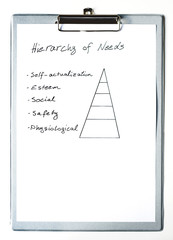 Hierarchy of Needs
- Self-actualization
- Esteem
- Social
- Safety
- Physiological